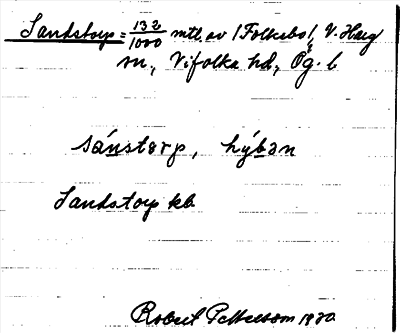 Sandstorp = 132/1000 mtl. av /Folkebo/, V. Harg
sn., Vifolka hd, Ög. l
sánstərp, hýbən
Sandstorp kb
Robert Pettersson 1930